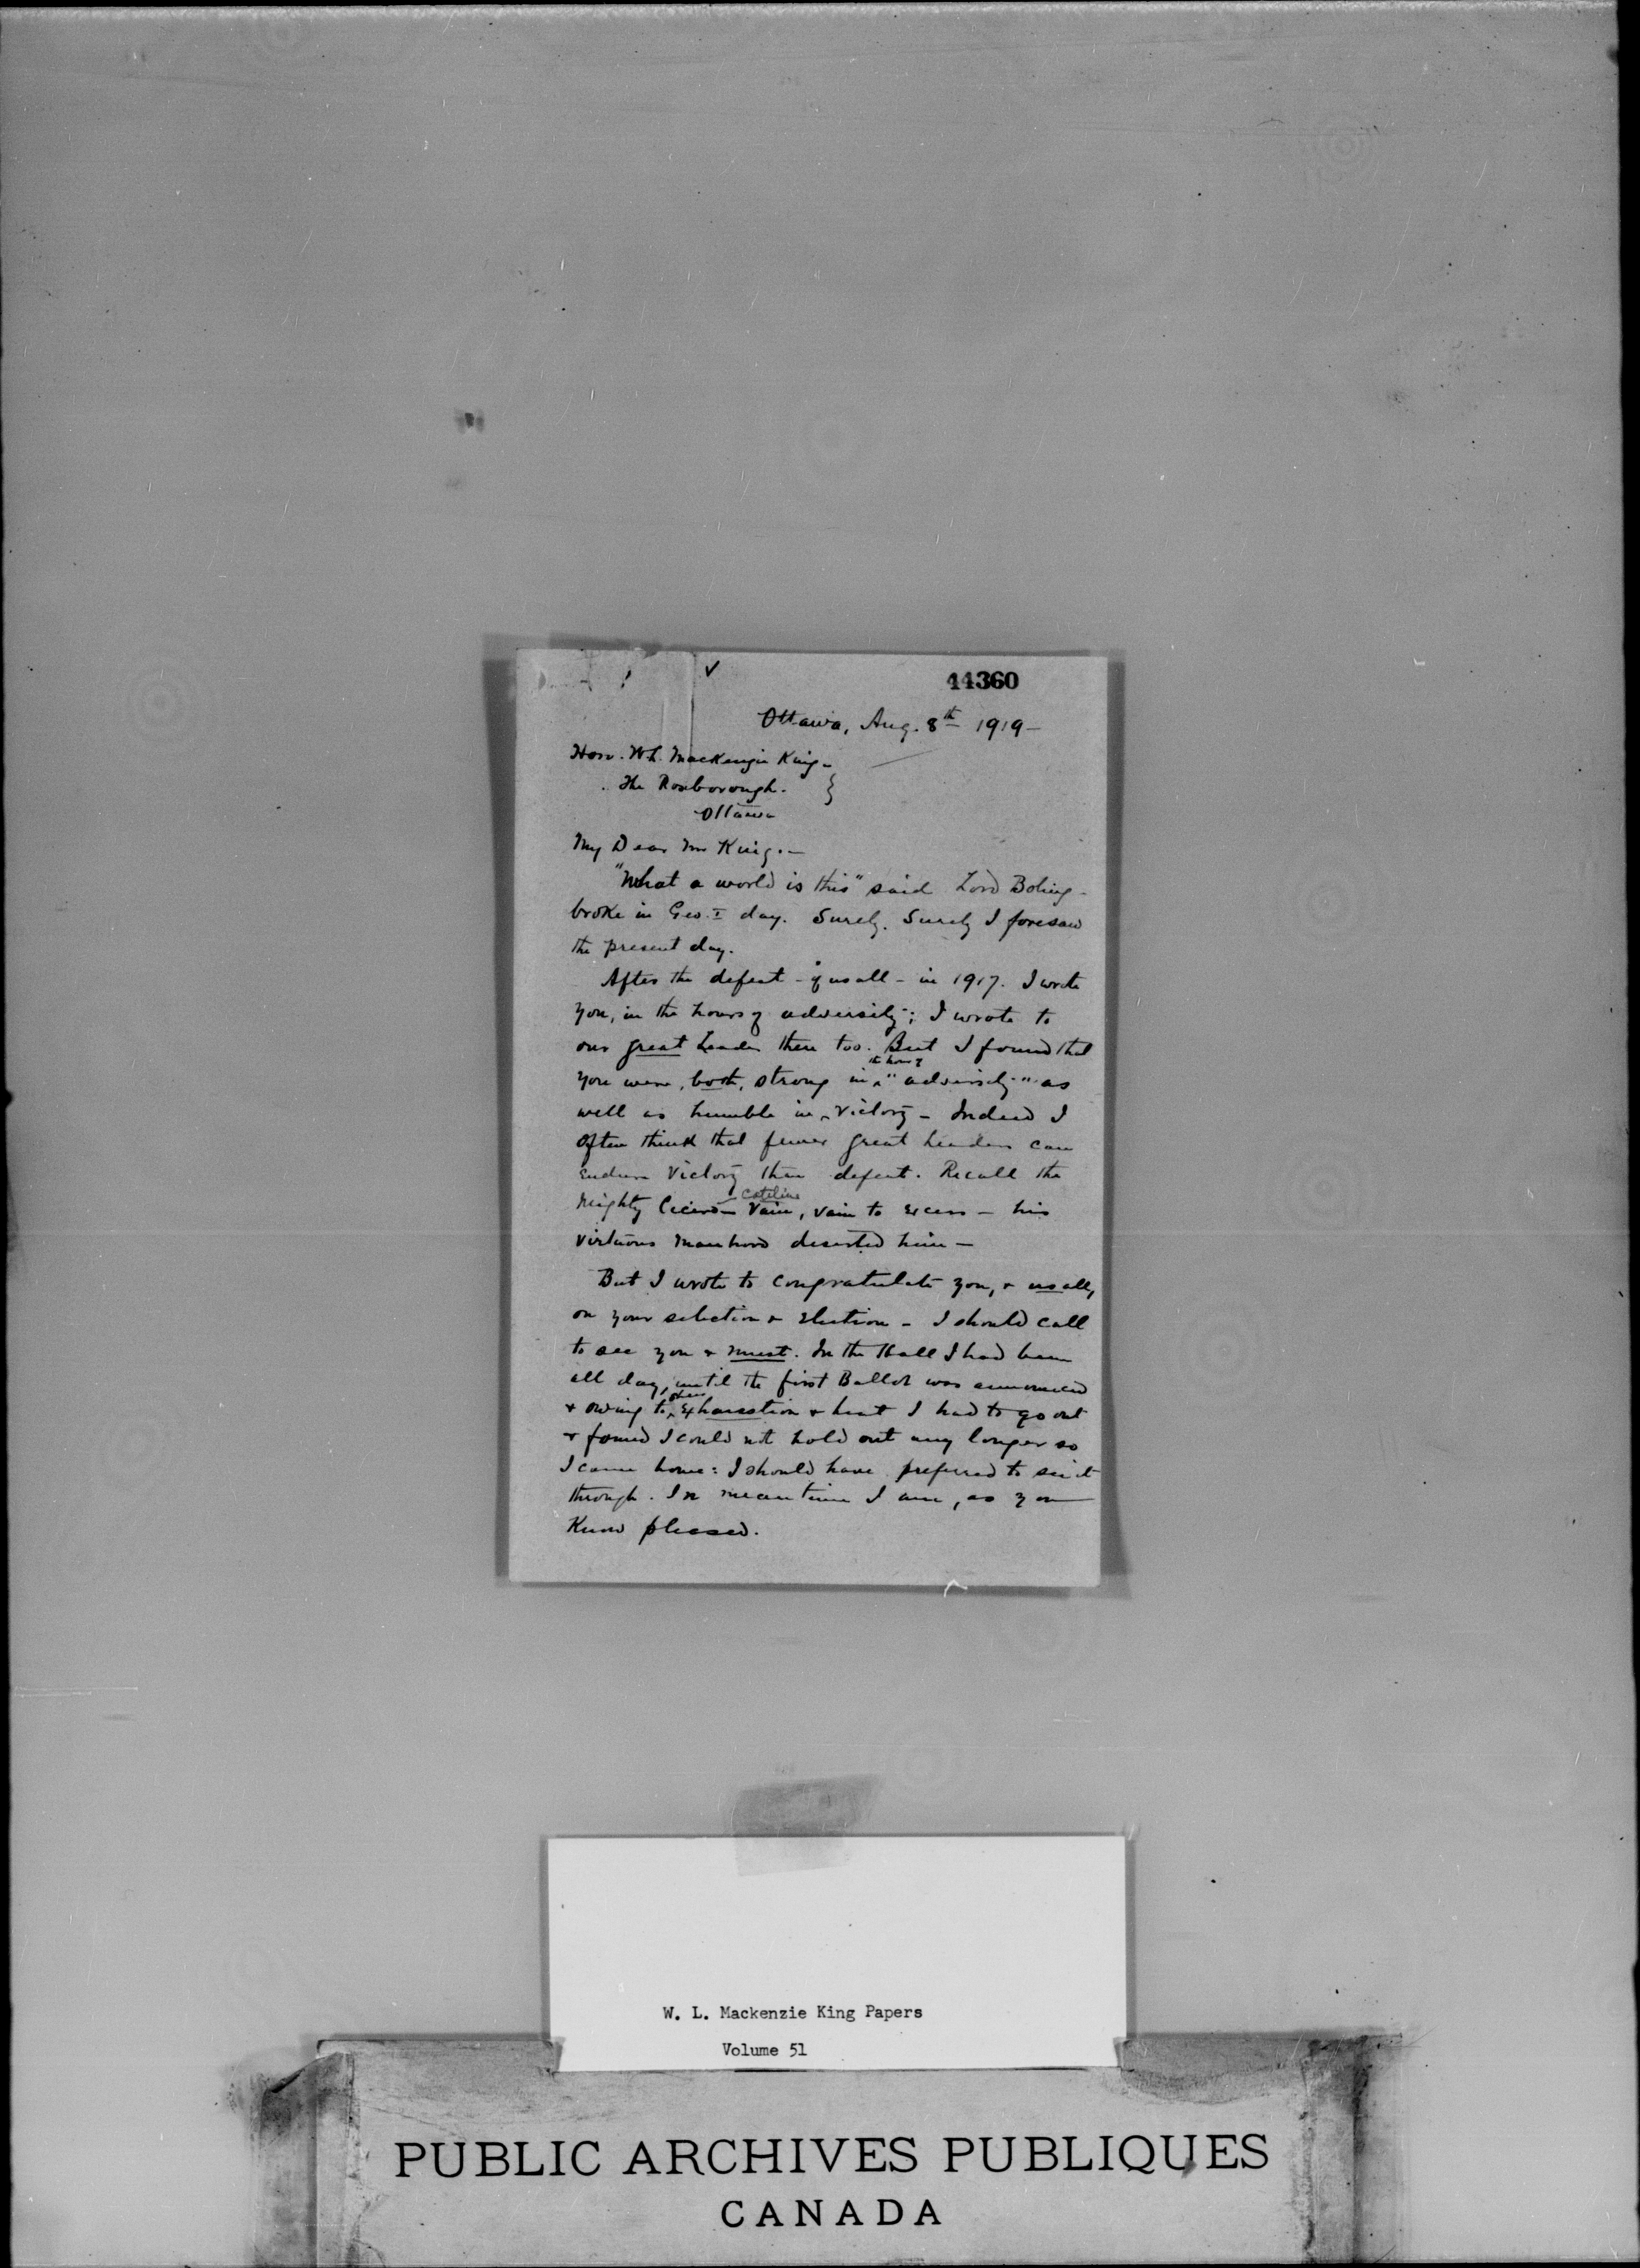 44360
Ottawa, Aug. 8th 1919-
Hon. W.L. Mackenzie King-
The Roxborough.
Ottawa
My Dear Mr King.-
"What a world is this" said Lord Boling-
broke in Geo. I day. Surely. Surely I foresaw
the present day.
After the defeat - of us all - in 1917. I wrote
you, in the hours of adversity; I wrote to
our great Leader then too. But I found that
the hour of
you were, both, strong in "adversity" as
well as humble in victory - Indeed I
often think that fewer great leaders can
endure Victory than defeat. Recall the
Cateline
Mighty Cicero - Vain, vain to excess - his
virtuous manhood deserted him -
But I wrote to congratulate you, & us all,
on your selection & election - I should call
to see you & must. In the Hall I had been
all day, until the first Ballot was announced
& owing to exhaustion & heat I had to go out
& found I could not hold out any longer so
I came home: I should have preferred to see it
through. In mean time I am, as you
Know pleased.
W. L. Mackenzie King Papers
Volume 51
PUBLIC ARCHIVES PUBLIQUES
CANADA